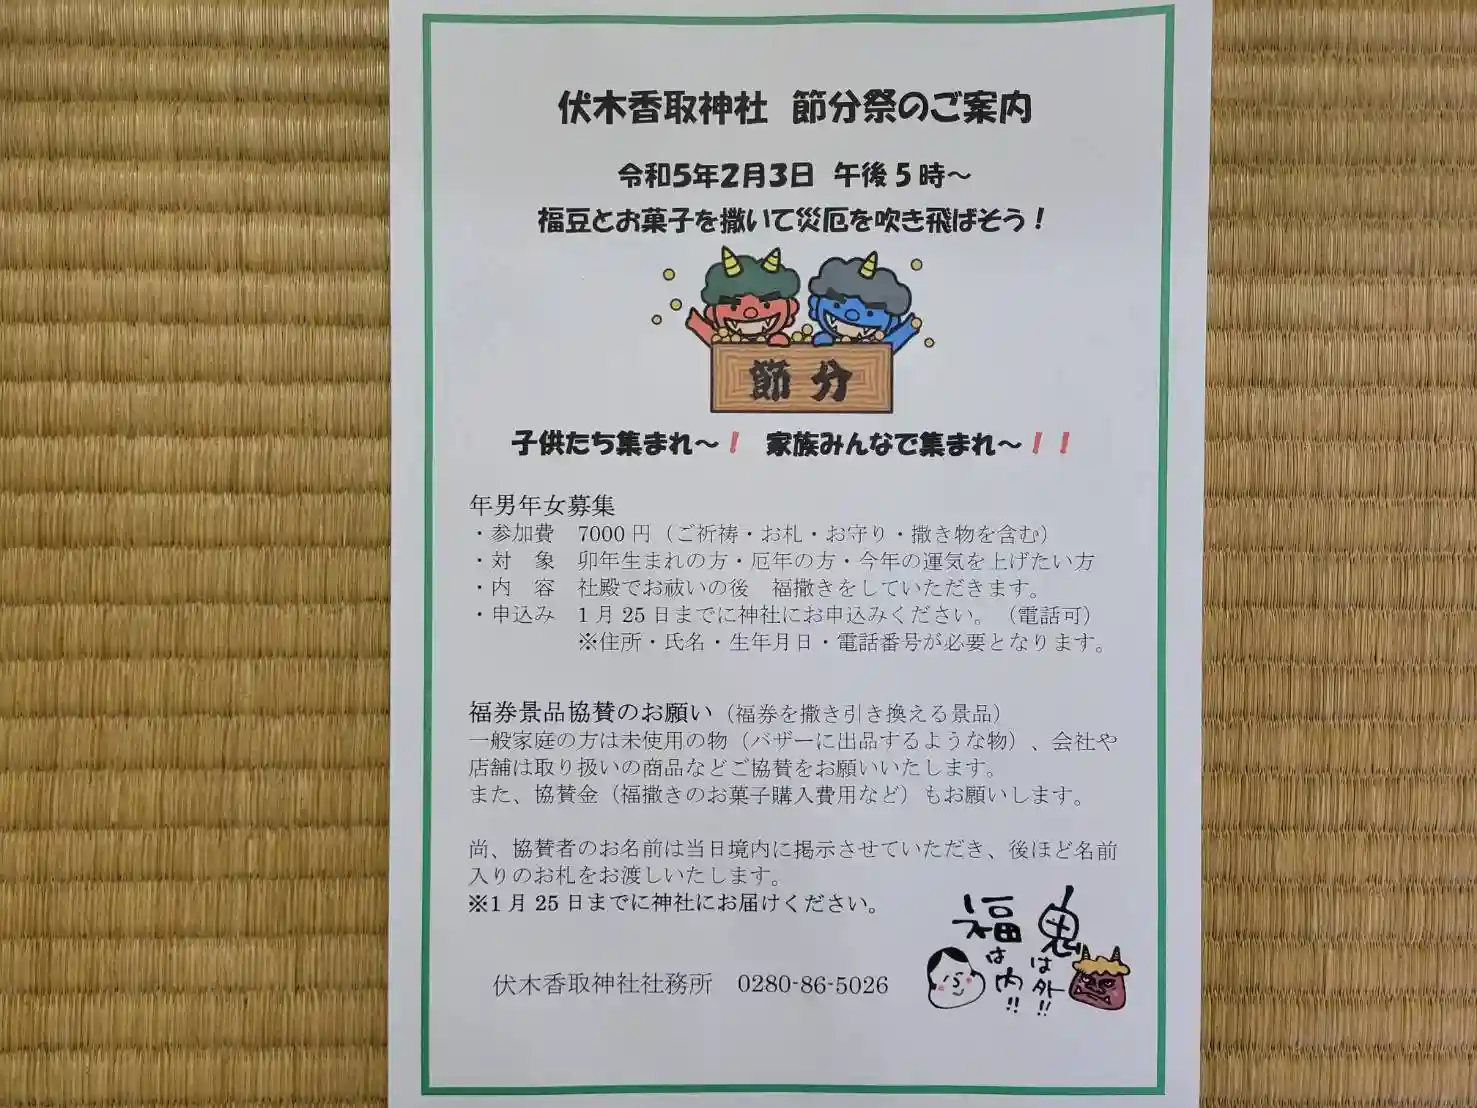 伏木香取神社　節分祭のご案内
令和5年2月3日　午後５時～
福豆とお菓子を撒いて災厄を吹き飛ばそう！
節分
子供たち集まれ～！　家族みんなで集まれ～！！
年男年女募集
・参加費　7000円（ご祈祷・お札・お守り・撒き物を含む）
・対　象　卯年生まれの方・厄年の方・今年の運気を上げたい方
・内　容　社殿でお祓いの後　福撒きをしていただきます。
・申込み　1月25日までに神社にお申込みください。（電話可）
※住所・氏名・生年月日・電話番号が必要となります。
福券景品協賛のお願い（福券を撒き引き換える景品）
一般家庭の方は未使用の物（バザーに出品するような物）、会社や
店舗は取り扱いの商品などご協賛をお願いいたします。
また、協賛金（福撒きのお菓子購入費用など）もお願いします。
尚、協賛者のお名前は当日境内に掲示させていただき、後ほど名前
入りのお札をお渡しいたします。
※1月25日までに神社にお届けください。
鬼は外!!
福は内!!
伏木香取神社社務所　0280-86-5026